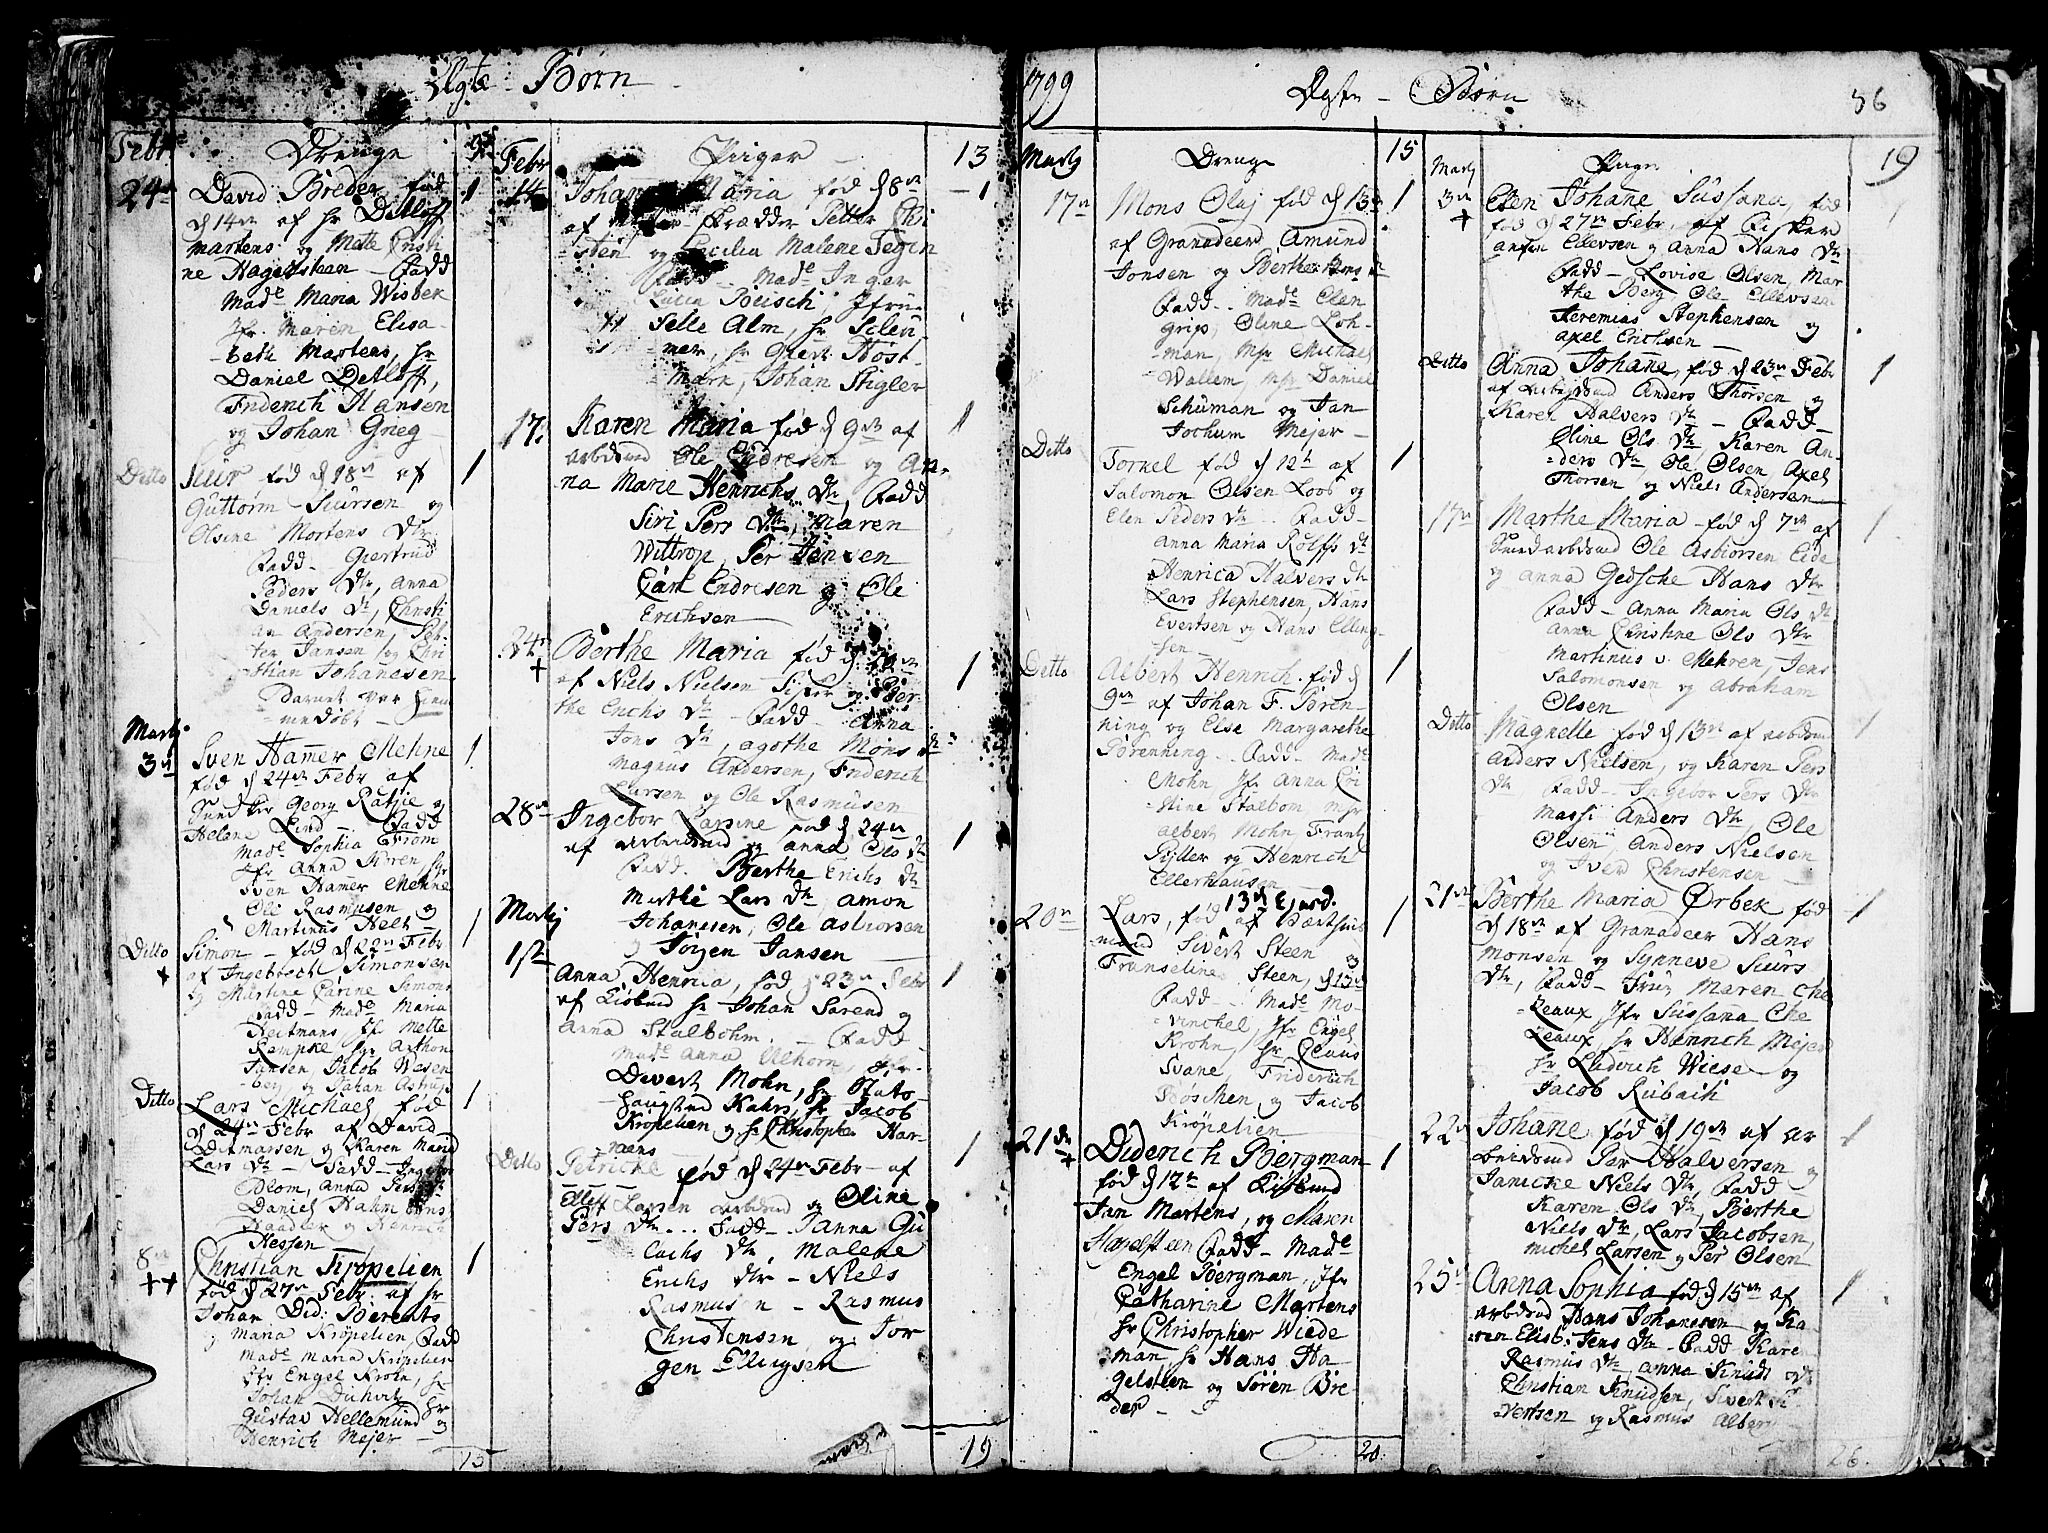 Ægte Børn
Febr
Drenge
24
David Breder fød
d 14de af Hr Ditloff
Martens og Mette Christi
ne Hagelsteen - Fadd
Made Maria Wisbek
Jfr. Maren Elisa-
-beth Martens, Hr
Daniel Detloff,
Friderich Hansen
og Johan Grieg
1
Ditto
Siur fød d 18de af
Guttorm Siursen og
Olsine Mortens Dtr
Fadd - Giertrud
Peders Dtr, Anna
Daniels Dtr, Christi
an Andersen, Pet-
ter Jansen og Chri
stian Johanesen
Barnet var hiem
medøbt
1
Martj
3
Sven Hamer Mehne
fød d 24de Febr af
Georg Ratje og
Helene Lind Fadd
Made Sophia From
Jfr Anna Koren, Hr
Sven Hamer Mehne
Ole Rasmusen og
Martinus Heet
1
Ditto
+
Simon - fød d 22de Febr
af Ingebrecht Simonsen
og Martine Carine Simons
Fadd - Made Maria
Heitmans, Jfr Mette
Kempke Hr Anthon
Jansen, Jacob Wesen
berg og Johan Astrup
1
Ditto
Lars Michael fød
d 24de Febr af David
Ditmarsen, og Karen Maria
Lars Dtr - Fadd - Ingebor
Blom, Anna
Daniel Hahn
og Henrich
Hessen
1
8
++
Christian Krøpelien
fød d 27de Febr. af Hr
Johan Did: Berents
og Maria Krøpelien, Fadd
Made Maria Krøpelien
Jfr Engel Krohn, Hr
Johan
Gustav Hellemund Hr
Henrich Mejer og
1
13
Febr
Piger
13
14
Johane Maria fød d 8de
af Petter Chri
stian og Cecilia Malene Tegen
Fadd - Made Inger
Lucia Beisch, Jfru
Selle Alm, Hr Selen
mer, Hr Giert Høst
mark, Johan Stigler
1
17
Karen Maria fød d 9de af
Arbdsmd Ole Endresen og An-
na Marie Henrichs Dtr, Fadd
Siri Pers Dtr, Maren
Wittrop, Per Jensen
Carl Endresen og Ole
Erichsen
1
24
+
Berthe Maria fød d
af Niels Nielsen og Ber-
the Erichs Dtr - Fadd - Anna
Jons Dtr, Agothe Mons Dtr
Magnus Andersen, Friderich
Larsen og Ole Rasmusen
1
28
Ingebor Larsine fød d 24de
af Arbeidsmd og Anna Ols Dtr
Fadd. Berthe Erichs Dtr
Marthe Lars Dtr, Amon
Johanesen, Ole Asbiørsen
og Jørgen Jansen
1
Martj
1ste
Anna Henrica, fød d 23de Febr
af Kiøbmd Hr Johan Sarend og
Anna Stalbohm. - Fadd
Made Anna Ulhorn, Jfr
Devert Mohn, Hr Stats-
hauptmd Kahrs, Hr Jacob
Krøpelien og Hr Christopher Har-
mens
1
Ditto
Petricke fød d 24de Febr - af
Ellef Larsen Arbdsmd og Oline
Pers Dtr... Fadd - Anna Gu
Lachs Dtr, Malene
Erichs Dtr - Niels
Rasmusen - Rasmus
Christensen og Jør
gen Ellingsen
1
19
1799
Ægte - Børn
56
Martj
Drenge
15
17
Mons Olaj fød d 13de
af Granadeer Amund
Jonsen og Berthe Mons Dtr
Fadd - Made Elen
Grip, Oline Loh-
-man, Msr Michael
Wallem, Msr Daniel
Schuman og Jan
Jochum Mejer -
1
Ditto
Tornel fød d 12te af
Salomon Olsen Loos og
Elen Peders Dtr - Fadd -
Anna Maria Rolffs Dtr
Henrica Halvers Dtr
Lars Stephensen, Hans
Evertsen og Hans Elling-
sen -
1
Ditto
Albert Henrich fød d
9de af Johan F. Børen-
ning og Else Margarethe
Børenning - Fadd - Made
Mohn Jfr Anna Cri
stine Stalbom, Msr
Albert Mohn, Frantz
Pyller og Henrich
Ellerhausen
1
20
Lars, fød 13de Ejusd. af
mand Sivert Steen og
Franseline Steen, d 13de
Fadd - Made Mo-
winchel, Jfr Engel
Krohn, Hr Claus
Svane, Friderich
Bøschen, og Jacob
Krøpelien
1
21
+
Diderich Bergman
fød d 12te af Kiøbmd
Jan Martens, og Maren
Hagelsteen Fadd - Made
Engel Bergman, Jfr
Catharine Martens
Hr Christopher Wiede
man, Hr Hans Ha
gelsteen og Søren Bre
der -
1
20
Martj
Piger
19
3
+
Elen Johane Sussana, fød
fød d 27de Febr, af Fisker
Ellevsen og Anna Hans Dtr
Fadd - Lovise Olsen, Mar
the Berg, Ole Ellevsen
Jeremias Stephensen og
Axel Erichsen
1
Ditto
Anna Johane, fød d 23de Febr
af Arbejdsmd Anders Thorsen og
Karen Halvers Dtr - Fadd -
Oline Ols Dtr, Karen An-
-ders Dtr, Ole Olsen Axel
Thorsen og Niels Andersen
1
17
Marthe Maria - fød d 7de af
Ole Asbiørsen Eide
og Anna Gedsche Hans Dtr
Fadd - Anna Maria Ols Dtr
Anna Christine Ols Dtr
Martinus v. Mehren, Jens
Salomonsen og Abraham
Olsen
1
Ditto
Magnelle fød d 13de af Arbdsmd
Anders Nielsen, og Karen Pers
Dtr, Fadd - Ingebor Pers Dtr
Massi Anders Dtr, Ole
Olsen, Anders Nielsen
og Iver Christensen
1
21
Berthe Maria Ørbek fød
d 18de af Granadeer Hans
Monsen og Synneve Siurs
Dtr, Fadd - Fru Maren Che
-Leaux Jfr Sussana Che
Leaux, Hr Henrich Mejer
Hr Ludvich Wiese og
Jacob Rubach
1
22
Johane fød d 19de af Ar
beidsmd Per Halversen og
Janicke Niels Dtr, Fadd -
Karen Ols Dtr, Berthe
Niels Dtr, Lars Jacobsen,
Michel Larsen og Per Olsen
1
25
Anna Sophia fød d 15de af
Arbdsmd Hans Johanesen og Ka-
ren Elisb: Jens Dtr - Fadd Karen
Rasmus Dtr, Anna Knuds Dtr
Christian Knudsen, Sivert Si
-vertsen og Rasmus Alber
1
26.